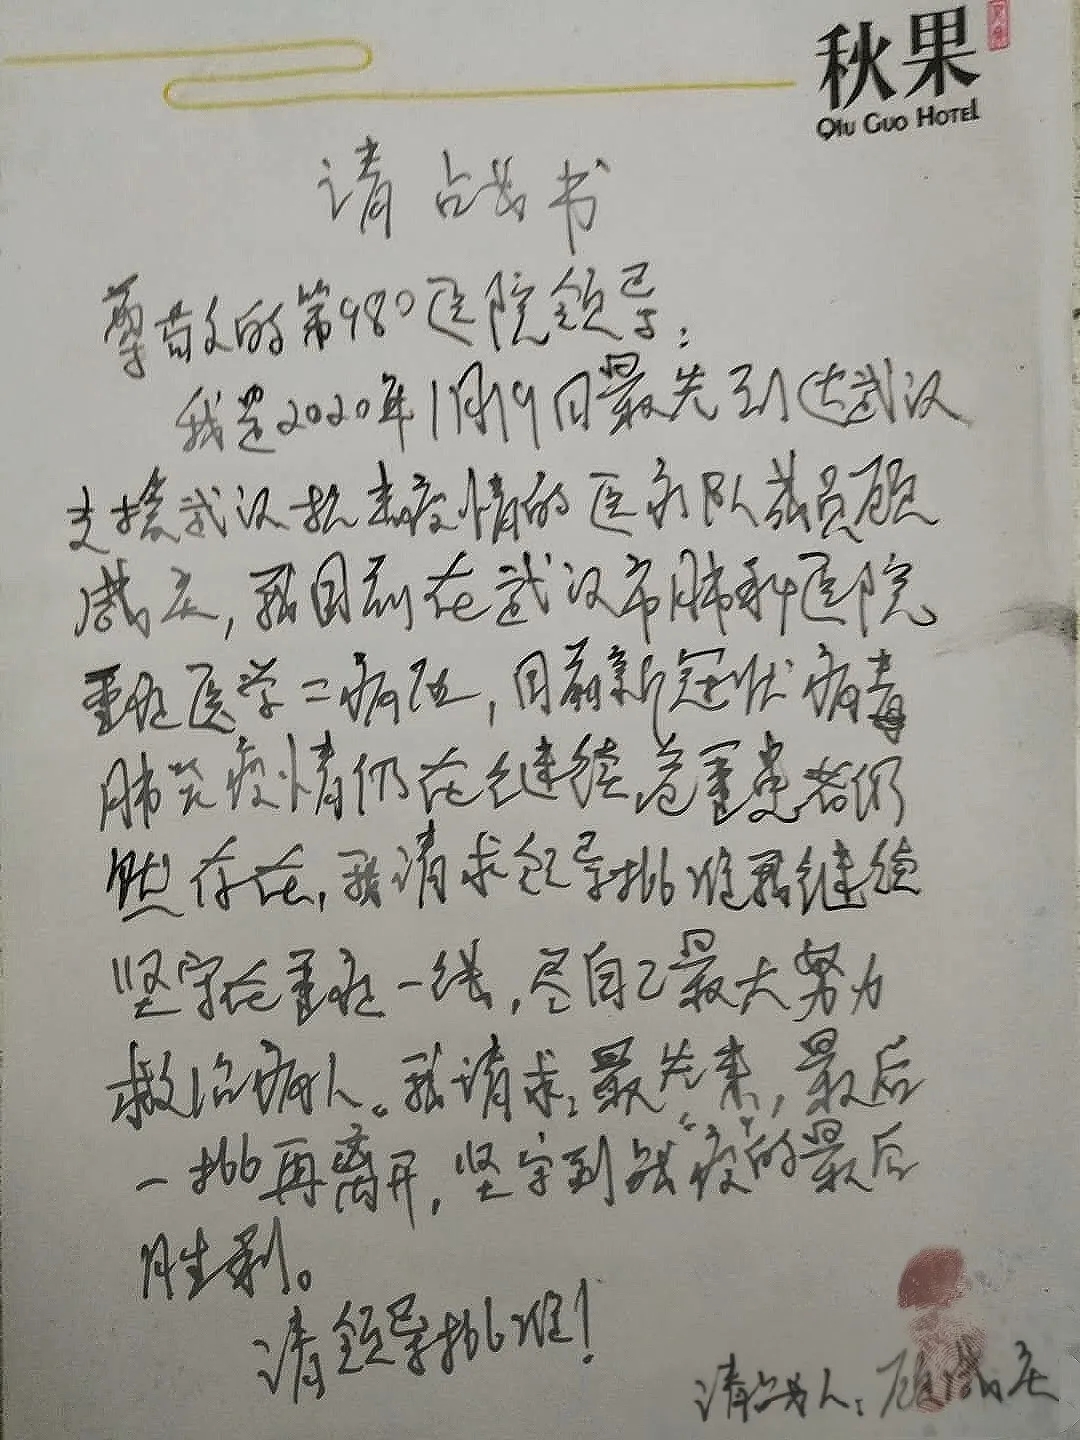 秋果
Qiu Guo Hotel
请战书
尊敬的第980医院领导:
我是2020年1月19日最先到达武汉
支援武汉抗击疫情的医疗队员顾
我目前在武汉市肺科医院
重症医学二病区,目前新冠状病毒
肺炎疫情仍在继续,危重患者仍
然存在,我请求领导批准我继续
坚守在重症一线,尽自己最大努力
救治病人。我请求:最先来,最后
一批再离开,坚守到战“疫”的最后
胜利。
请领导批准!
请战人:顾